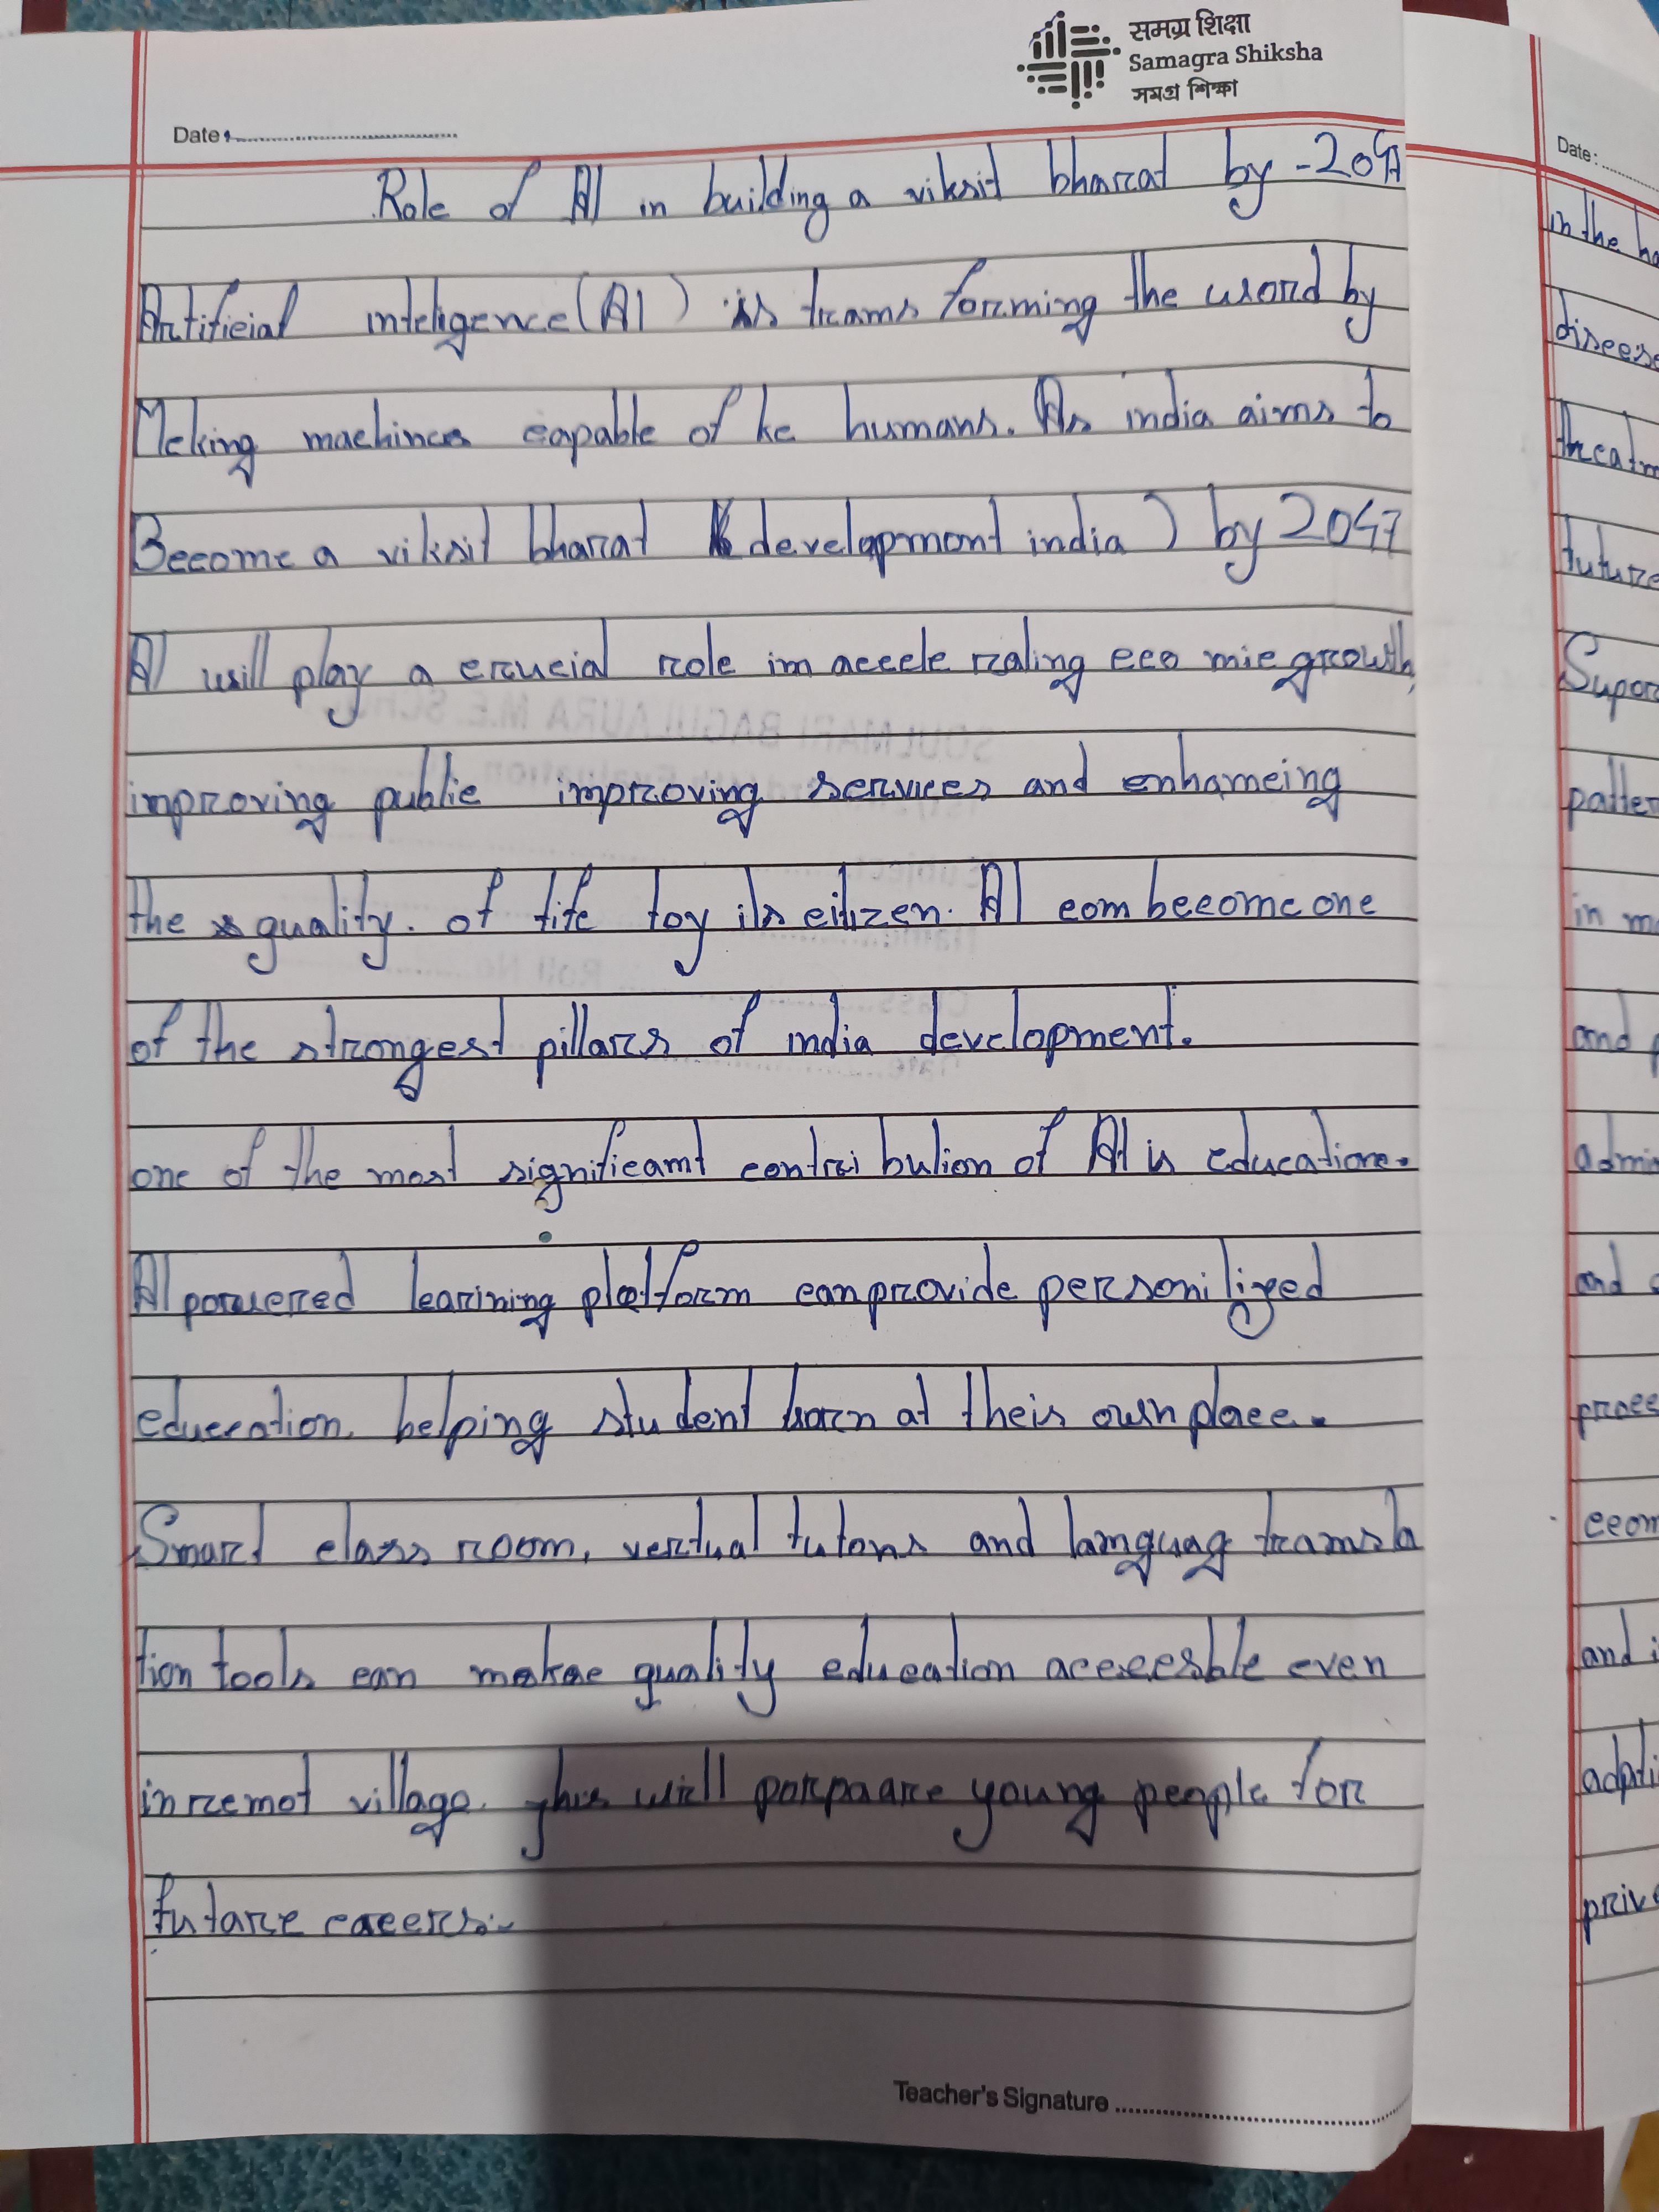 समग्र शिक्षा
Samagra Shiksha
সমগ্ৰ শিক্ষা
Date :
Role of AI in building a viksit bharat by - 2047
Artificial inteligence (AI) is trams forming the word by
Meking machines capable of ke humans. As india aims to
Become a viksit bharat (development india) by 2047
AI will play a crucial role im accele rating eco mic growth,
improving public improving services and enhamcing
the quality. of life foy its citizen. AI com become one
of the strongest pillars of india development.
one of the most significamt contri bution of AI is education.
AI powered learining platform can provide personilized
education, helping student learn at theis own place.
Smart class room, vertual tutons and lamguag tramsla
tion tools can makae quality education accecesble even
in remot village. This will porpaare young people for
futare caeers.
Teacher's Signature
Date :
in the
disees
treatm
future
Supor
patter
in m
and
admi
and
proce
econ
and i
adpti
priv